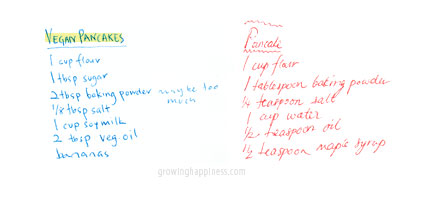 VEGAN PANCAKES
1 cup flour
1 tbsp sugar
2 tbsp baking powder maybe too much
1/8 tbsp salt
1 cup soymilk
2 tbsp veg. oil
bananas
Pancake
1 cup flour
1 tablespoon baking powder
1/4 teaspoon salt
1 cup water
1/2 teaspoon oil
1/2 teaspoon maple syrup
growinghappiness.com